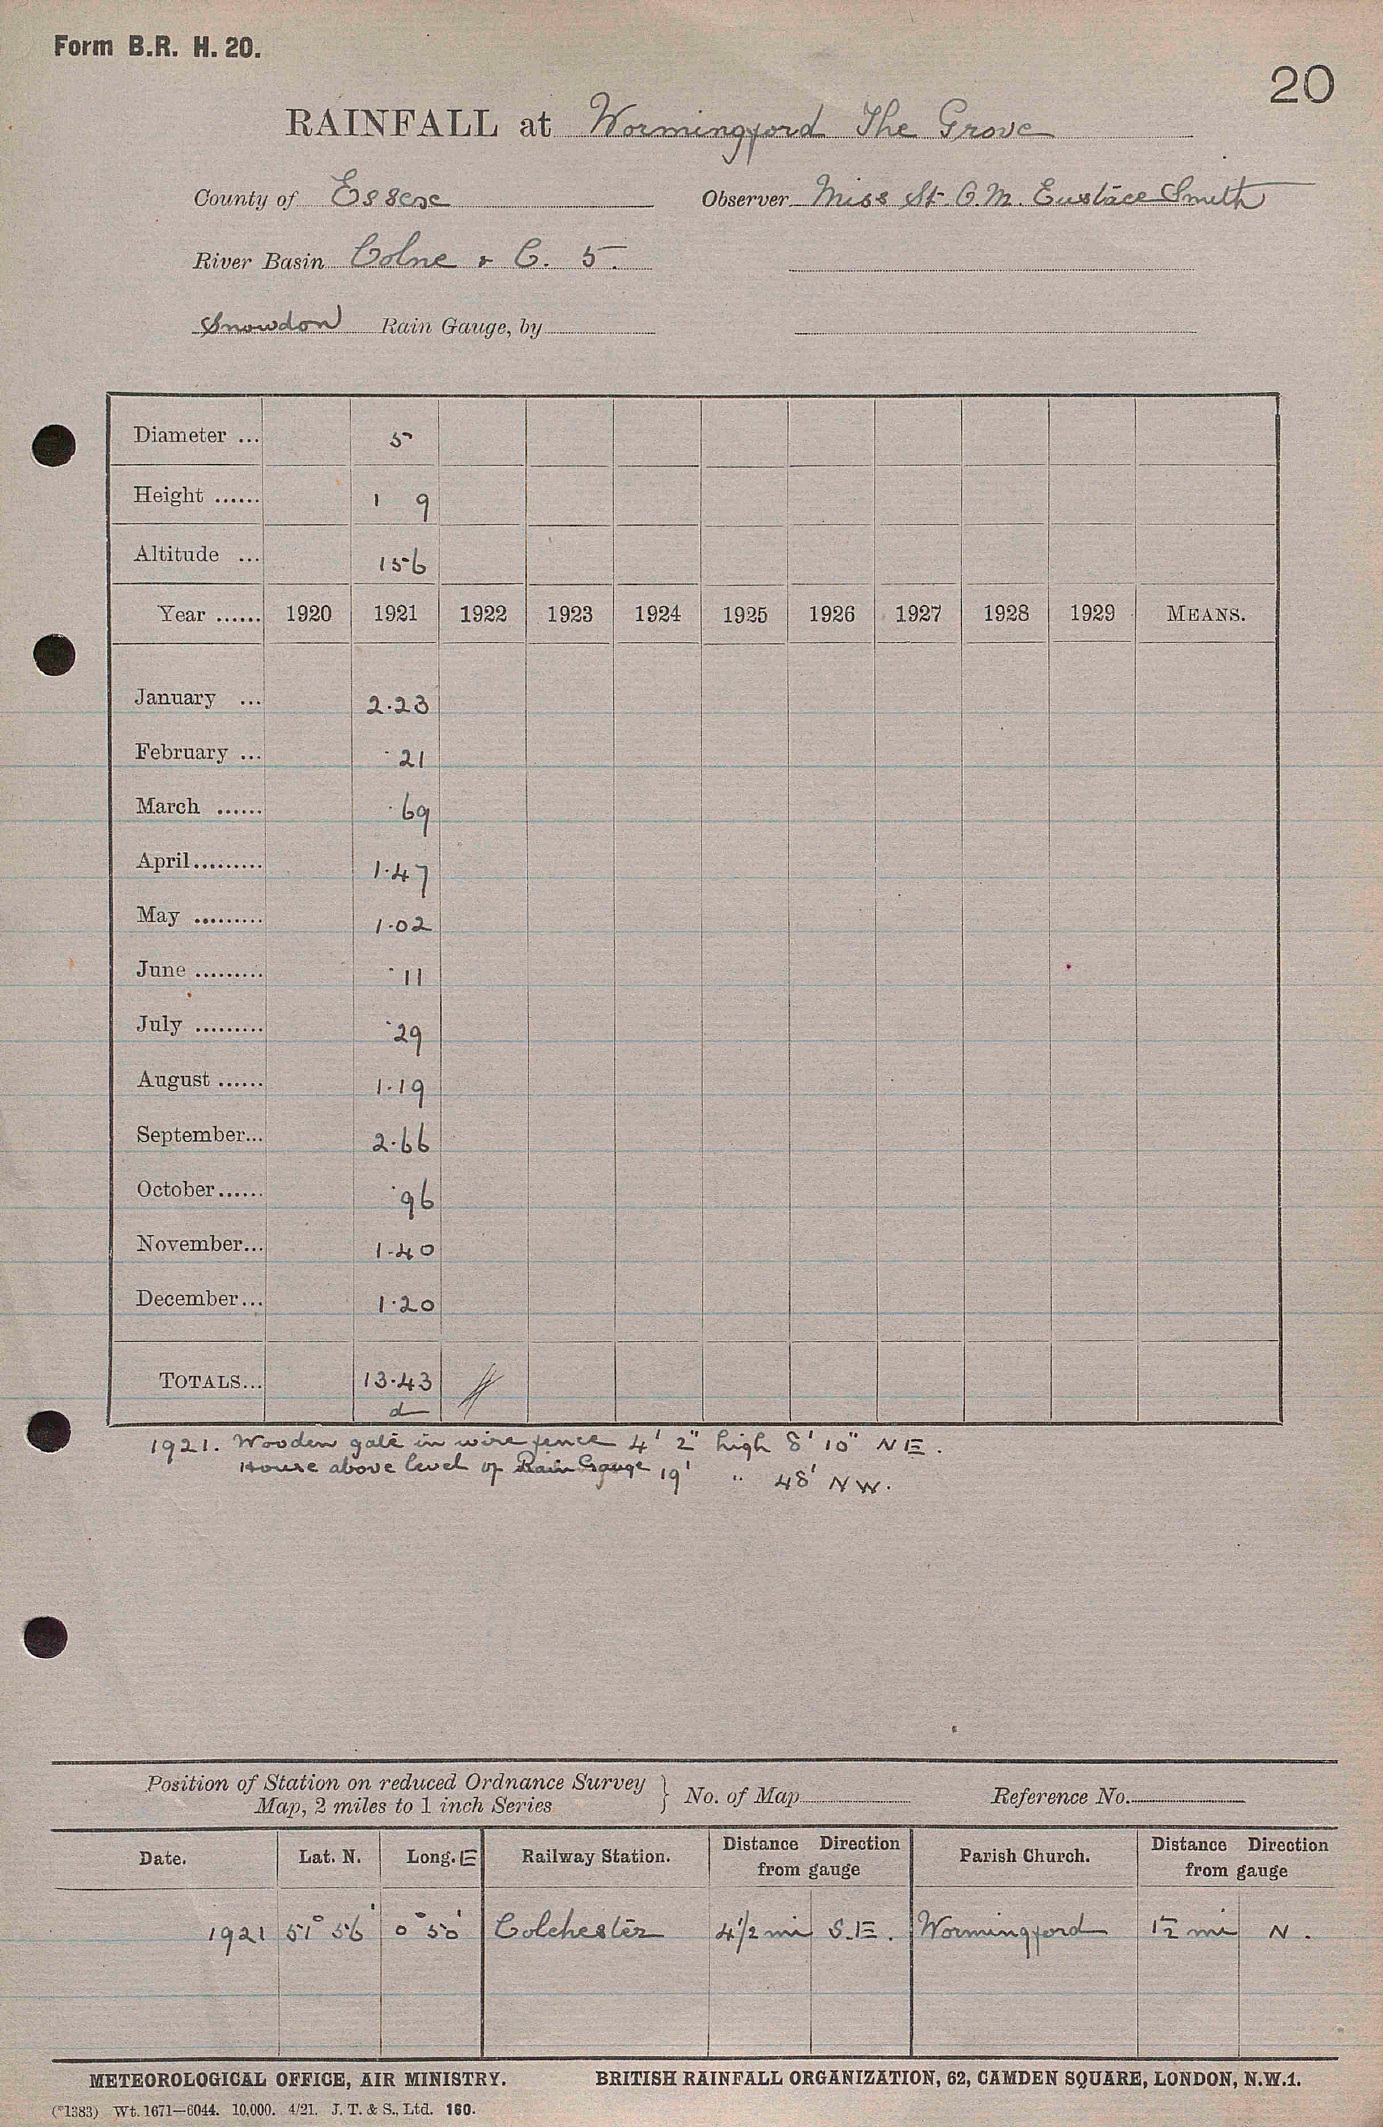 Form B.R. H. 20.
20
RAINFALL at Wormingford The Grove
County of Essex Observer Miss St. G. M. Eustace Smith
River Basin Colne & C. 5.
Snowdon Rain Gauge, by
Diameter ... 5
Height ...... 1 9
Altitude ... 156
Year ...... 1920 1921 1922 1923 1924 1925 1926 1927 1928 1929 MEANS.
January ... 2.23
February ... .21
March ...... .69
April......... 1.47
May ......... 1.02
June ......... .11
July ......... .29
August ...... 1.19
September... 2.66
October...... .96
November... 1.40
December... 1.20
TOTALS... 13.43
d
1921. Wooden gate in wire fence 4' 2" high 8' 10" NE.
House above level of Rain Gauge 19' " 48' NW.
Position of Station on reduced Ordnance Survey
Map, 2 miles to 1 inch Series } No. of Map Reference No.
Date. Lat. N. Long. E Railway Station. Distance Direction from gauge Parish Church. Distance Direction from gauge
1921 51° 56' 0° 50' Colchester 4 1/2 mi S.E. Wormingford 1/2 mi N.
METEOROLOGICAL OFFICE, AIR MINISTRY. BRITISH RAINFALL ORGANIZATION, 62, CAMDEN SQUARE, LONDON, N.W.1.
(*1383) Wt. 1671—6044. 10,000. 4/21. J. T. & S., Ltd. 160.